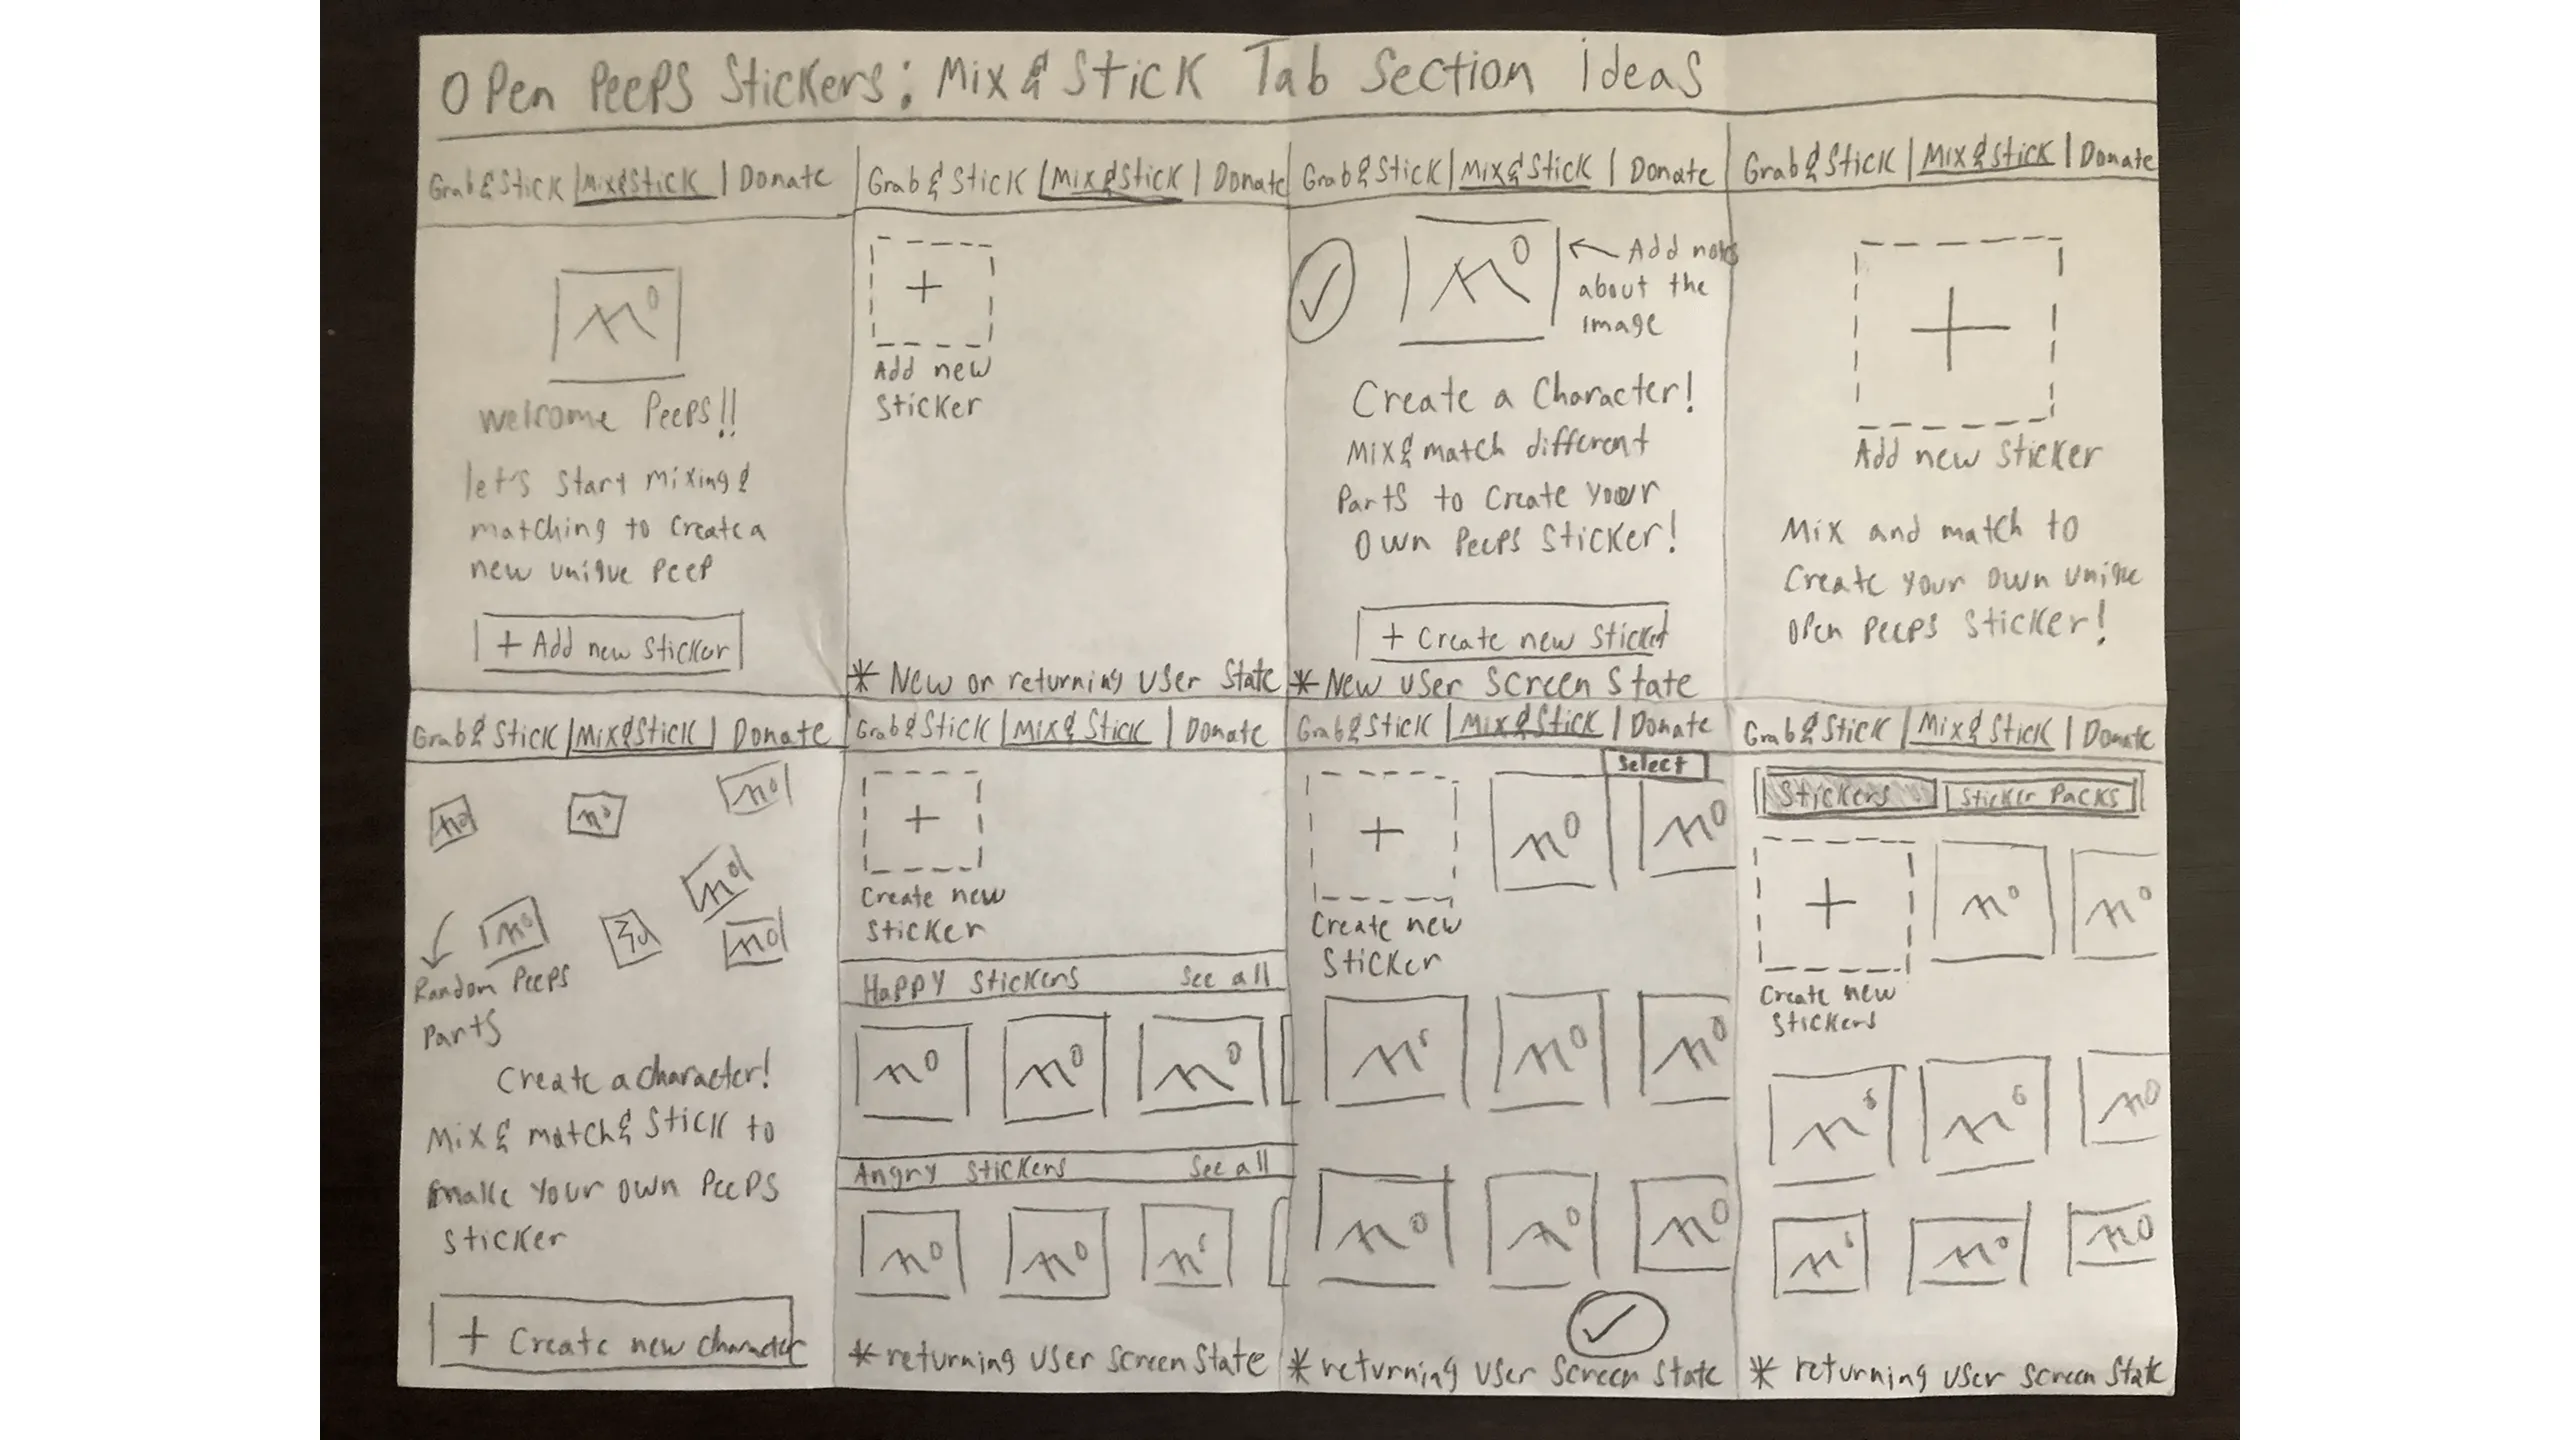 Open Peeps Stickers: Mix & Stick Tab Section Ideas
Grab & Stick | Mix & Stick | Donate
Welcome Peeps!!
let's start mixing &
matching to create a
new unique peep
+ Add new sticker
Grab & Stick | Mix & Stick | Donate
+
Add new
Sticker
* New or returning user state
Grab & Stick | Mix & Stick | Donate
Add notes
about the
image
Create a Character!
Mix & match different
parts to create your
own peeps sticker!
+ Create new sticker
* New user screen state
Grab & Stick | Mix & Stick | Donate
+
Add new sticker
Mix and match to
create your own unique
open peeps sticker!
Grab & Stick | Mix & Stick | Donate
Random Peeps
Parts
Create a character!
Mix & match & stick to
make your own peeps
sticker
+ Create new character
Grab & Stick | Mix & Stick | Donate
+
Create new
sticker
Happy stickers See all
Angry stickers See all
* returning user screen state
Grab & Stick | Mix & Stick | Donate
Select
+
Create new
sticker
* returning user screen state
Grab & Stick | Mix & Stick | Donate
Stickers Sticker Packs
+
Create new
stickers
* returning user screen state